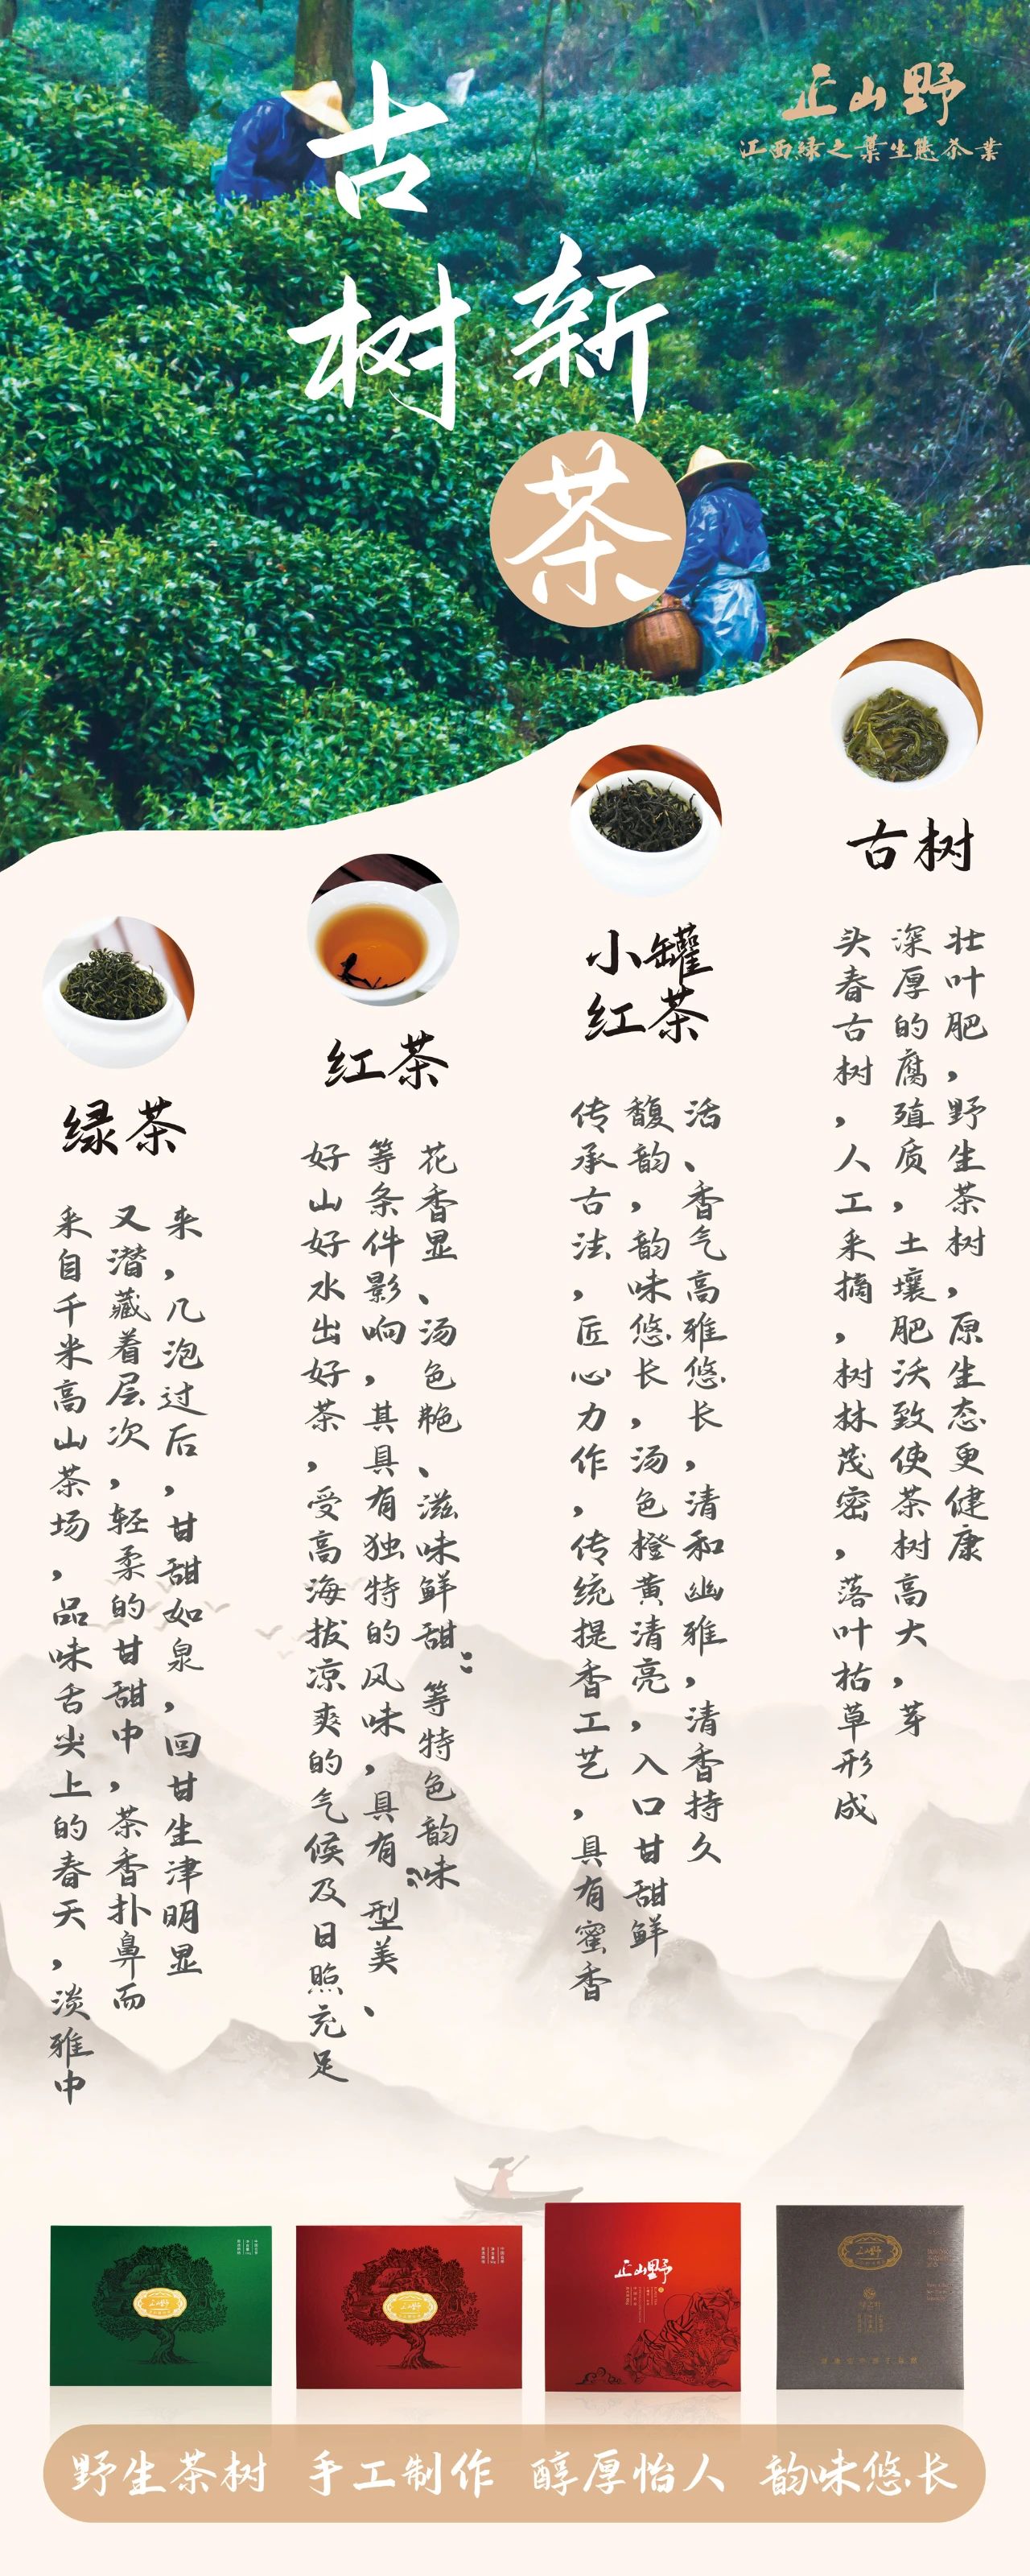 正山野
江西绿之葉生態茶業
古树
新茶
绿茶
来自千米高山茶场，品味舌尖上的春天，淡雅中
又潜藏着层次，轻柔的甘甜中，茶香扑鼻而
来，几泡过后，甘甜如泉，回甘生津明显
红茶
好山好水出好茶，受高海拔凉爽的气候及日照充足
等条件影响，其具有独特的风味，具有“型美、
花香显、汤色艳、滋味鲜甜”等特色韵味
小罐
红茶
传承古法，匠心力作，传统提香工艺，具有蜜香
馥韵，韵味悠长，汤色橙黄清亮，入口甘甜鲜
活、香气高雅悠长，清和幽雅，清香持久
古树
头春古树，人工采摘，树林茂密，落叶枯草形成
深厚的腐殖质，土壤肥沃致使茶树高大，芽
壮叶肥，野生茶树，原生态更健康
正山野
正山野
正山野
正山野
野生茶树 手工制作 醇厚怡人 韵味悠长